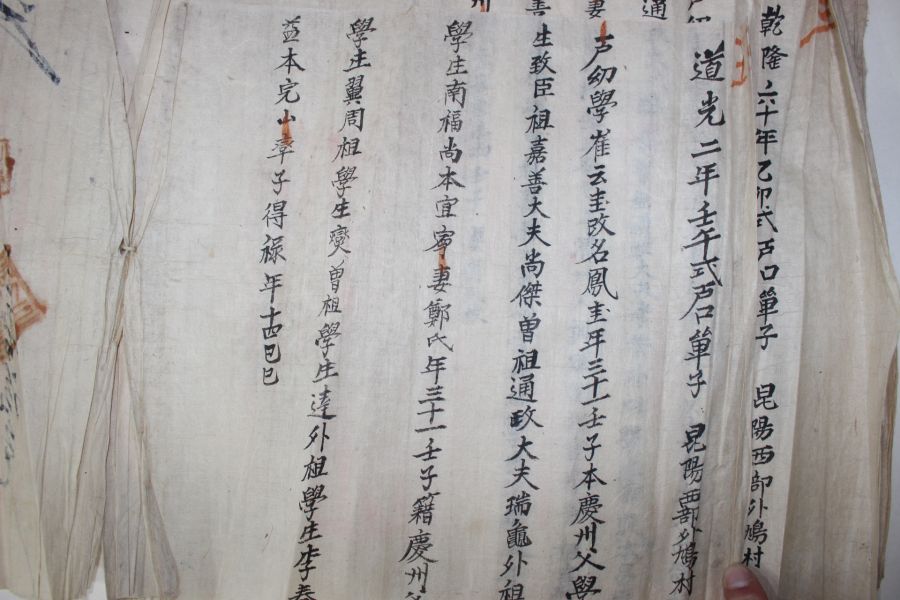 乾隆六十年乙卯式戶口單子 昆陽西部外鳩村
道光二年壬午式戶口單子 昆陽西部外鳩村
戶幼學崔云圭改名鳳圭年三十一壬子本慶州父學
生致臣祖嘉善大夫尚傑曾祖通政大夫瑞龜外祖
學生南福尚本宜寧妻鄭氏年三十一壬子籍慶州父
學生翼周祖學生曾祖學生逵外祖學生李春
益本完山率子得祿年十四己巳